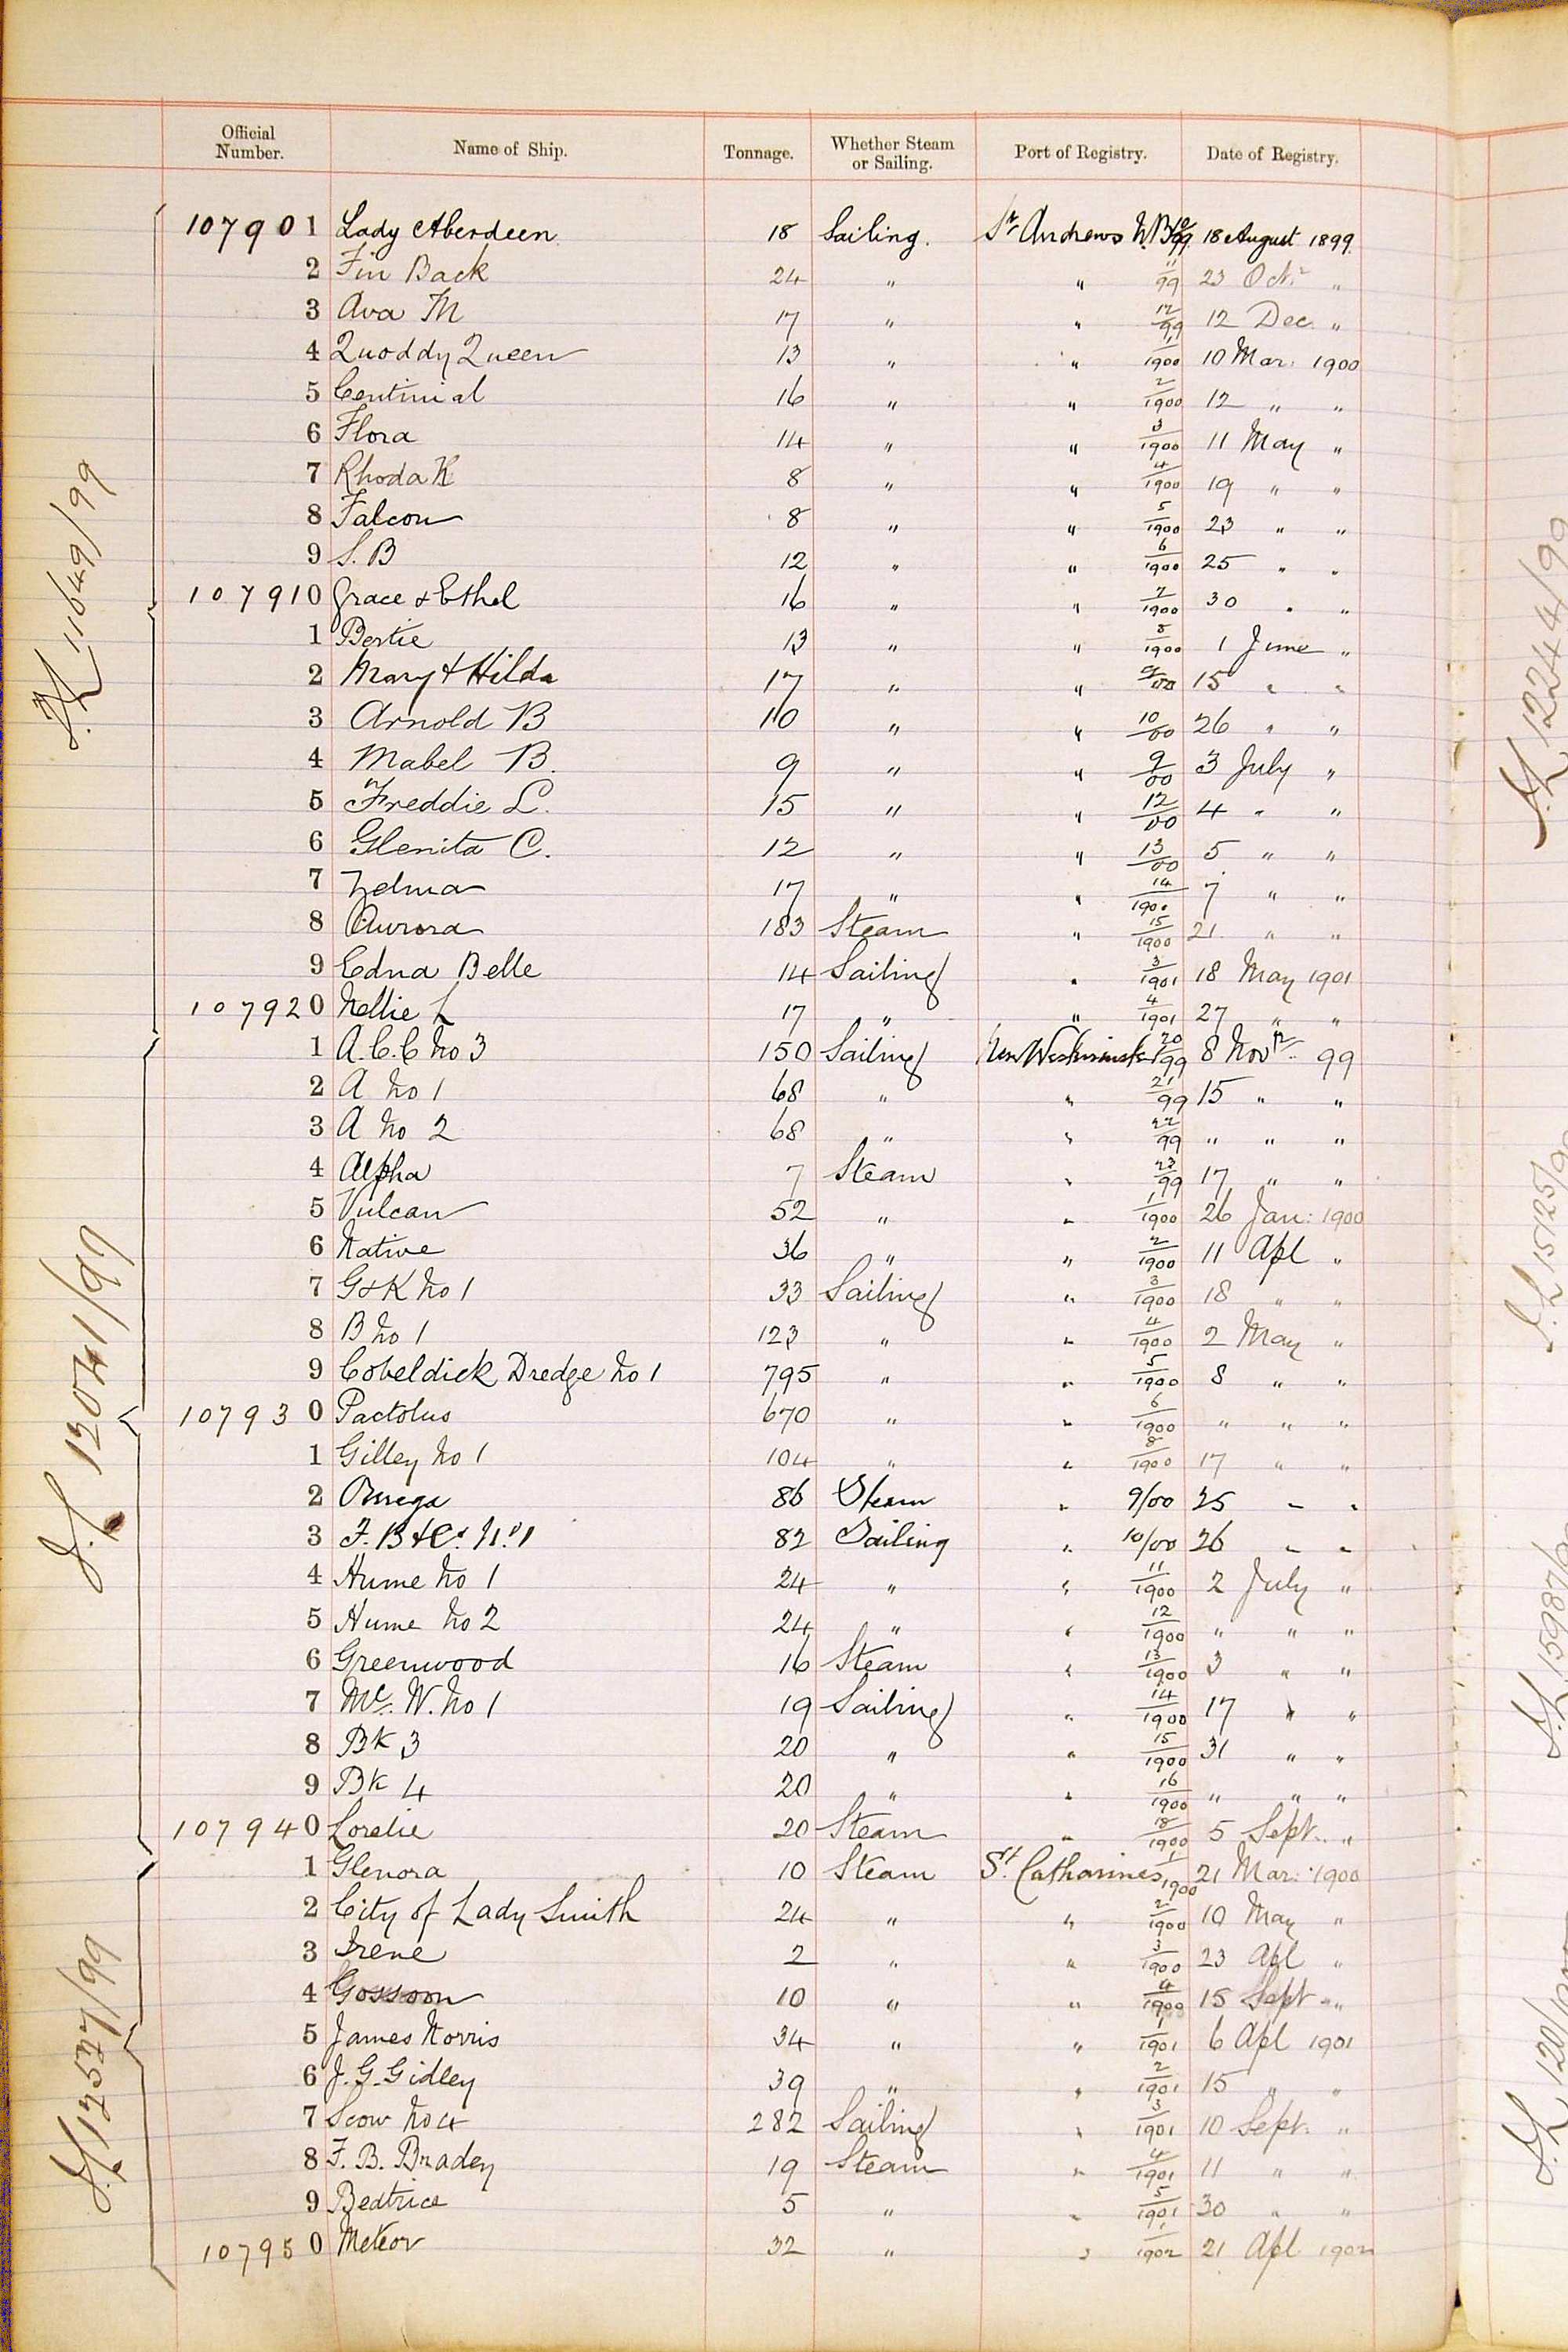 Official Number. Name of Ship. Tonnage. Whether Steam or Sailing. Port of Registry. Date of Registry.
107901 Lady Aberdeen 18 Sailing. St Andrews N.B. 10/99 18 August 1899
2 Fin Back 24 " " 11/99 23 Octr "
3 Ava M 17 " " 12/99 12 Dec. "
4 Quoddy Queen 13 " " 1/1900 10 Mar: 1900
5 Centinial 16 " " 2/1900 12 " "
6 Flora 14 " " 3/1900 11 May "
7 Rhoda K 8 " " 4/1900 19 " "
8 Falcon 8 " " 5/1900 23 " "
9 S. B 12 " " 6/1900 25 " "
107910 Grace & Ethel 16 " " 7/1900 30 " "
1 Bertie 13 " " 8/1900 1 June "
2 Mary & Hilda 17 " " 9/00 15 " "
3 Arnold B 10 " " 10/00 26 " "
4 Mabel B. 9 " " 9/00 3 July "
5 Freddie L. 15 " " 12/00 4 " "
6 Glenita C. 12 " " 13/00 5 " "
7 Zelma 17 " " 14/1900 7 " "
8 Aurora 183 Steam " 15/1900 21 " "
9 Edna Belle 14 Sailing " 3/1901 18 May 1901
107920 Nellie L 17 " " 4/1901 27 " "
1 A.C.C No 3 150 Sailing New Westminster 20/99 8 Novr 99
2 A No 1 68 " " 21/99 15 " "
3 A No 2 68 " " 22/99 " " "
4 Alpha 7 Steam " 23/99 17 " "
5 Vulcan 52 " " 1/1900 26 Jan: 1900
6 Native 36 " " 2/1900 11 Apl "
7 G&K No 1 33 Sailing " 3/1900 18 " "
8 B No 1 123 " " 4/1900 2 May "
9 Cobeldick Dredge No 1 795 " " 5/1900 8 " "
107930 Pactolus 670 " " 6/1900 " " "
1 Gilley No 1 104 " " 8/1900 17 " "
2 Omega 86 Steam " 9/00 25 " "
3 F. B & Co. No. 1 82 Sailing " 10/00 26 " "
4 Hume No 1 24 " " 11/1900 2 July "
5 Hume No 2 24 " " 12/1900 " " "
6 Greenwood 16 Steam " 13/1900 3 " "
7 Mc. W. No 1 19 Sailing " 14/1900 17 " "
8 BK 3 20 " " 15/1900 31 " "
9 BK 4 20 " " 16/1900 " " "
107940 Lorelie 20 Steam " 18/1900 5 Sept. "
1 Glenora 10 Steam St. Catharines 1/1900 21 Mar: 1900
2 City of Lady Smith 24 " " 2/1900 10 May "
3 Irene 2 " " 3/1900 23 Apl "
4 Gossoon 10 " " 4/1900 15 Sept "
5 James Norris 34 " " 1/1901 6 Apl 1901
6 J. G. Gidley 39 " " 2/1901 15 " "
7 Scow No 4 282 Sailing " 3/1901 10 Sept. "
8 F. B. Bradey 19 Steam " 4/1901 11 " "
9 Beatrice 5 " " 5/1901 30 " "
107950 Meteor 32 " " 1/1902 21 Apl 1902
11649/99
12041/99
12527/99
12244/99